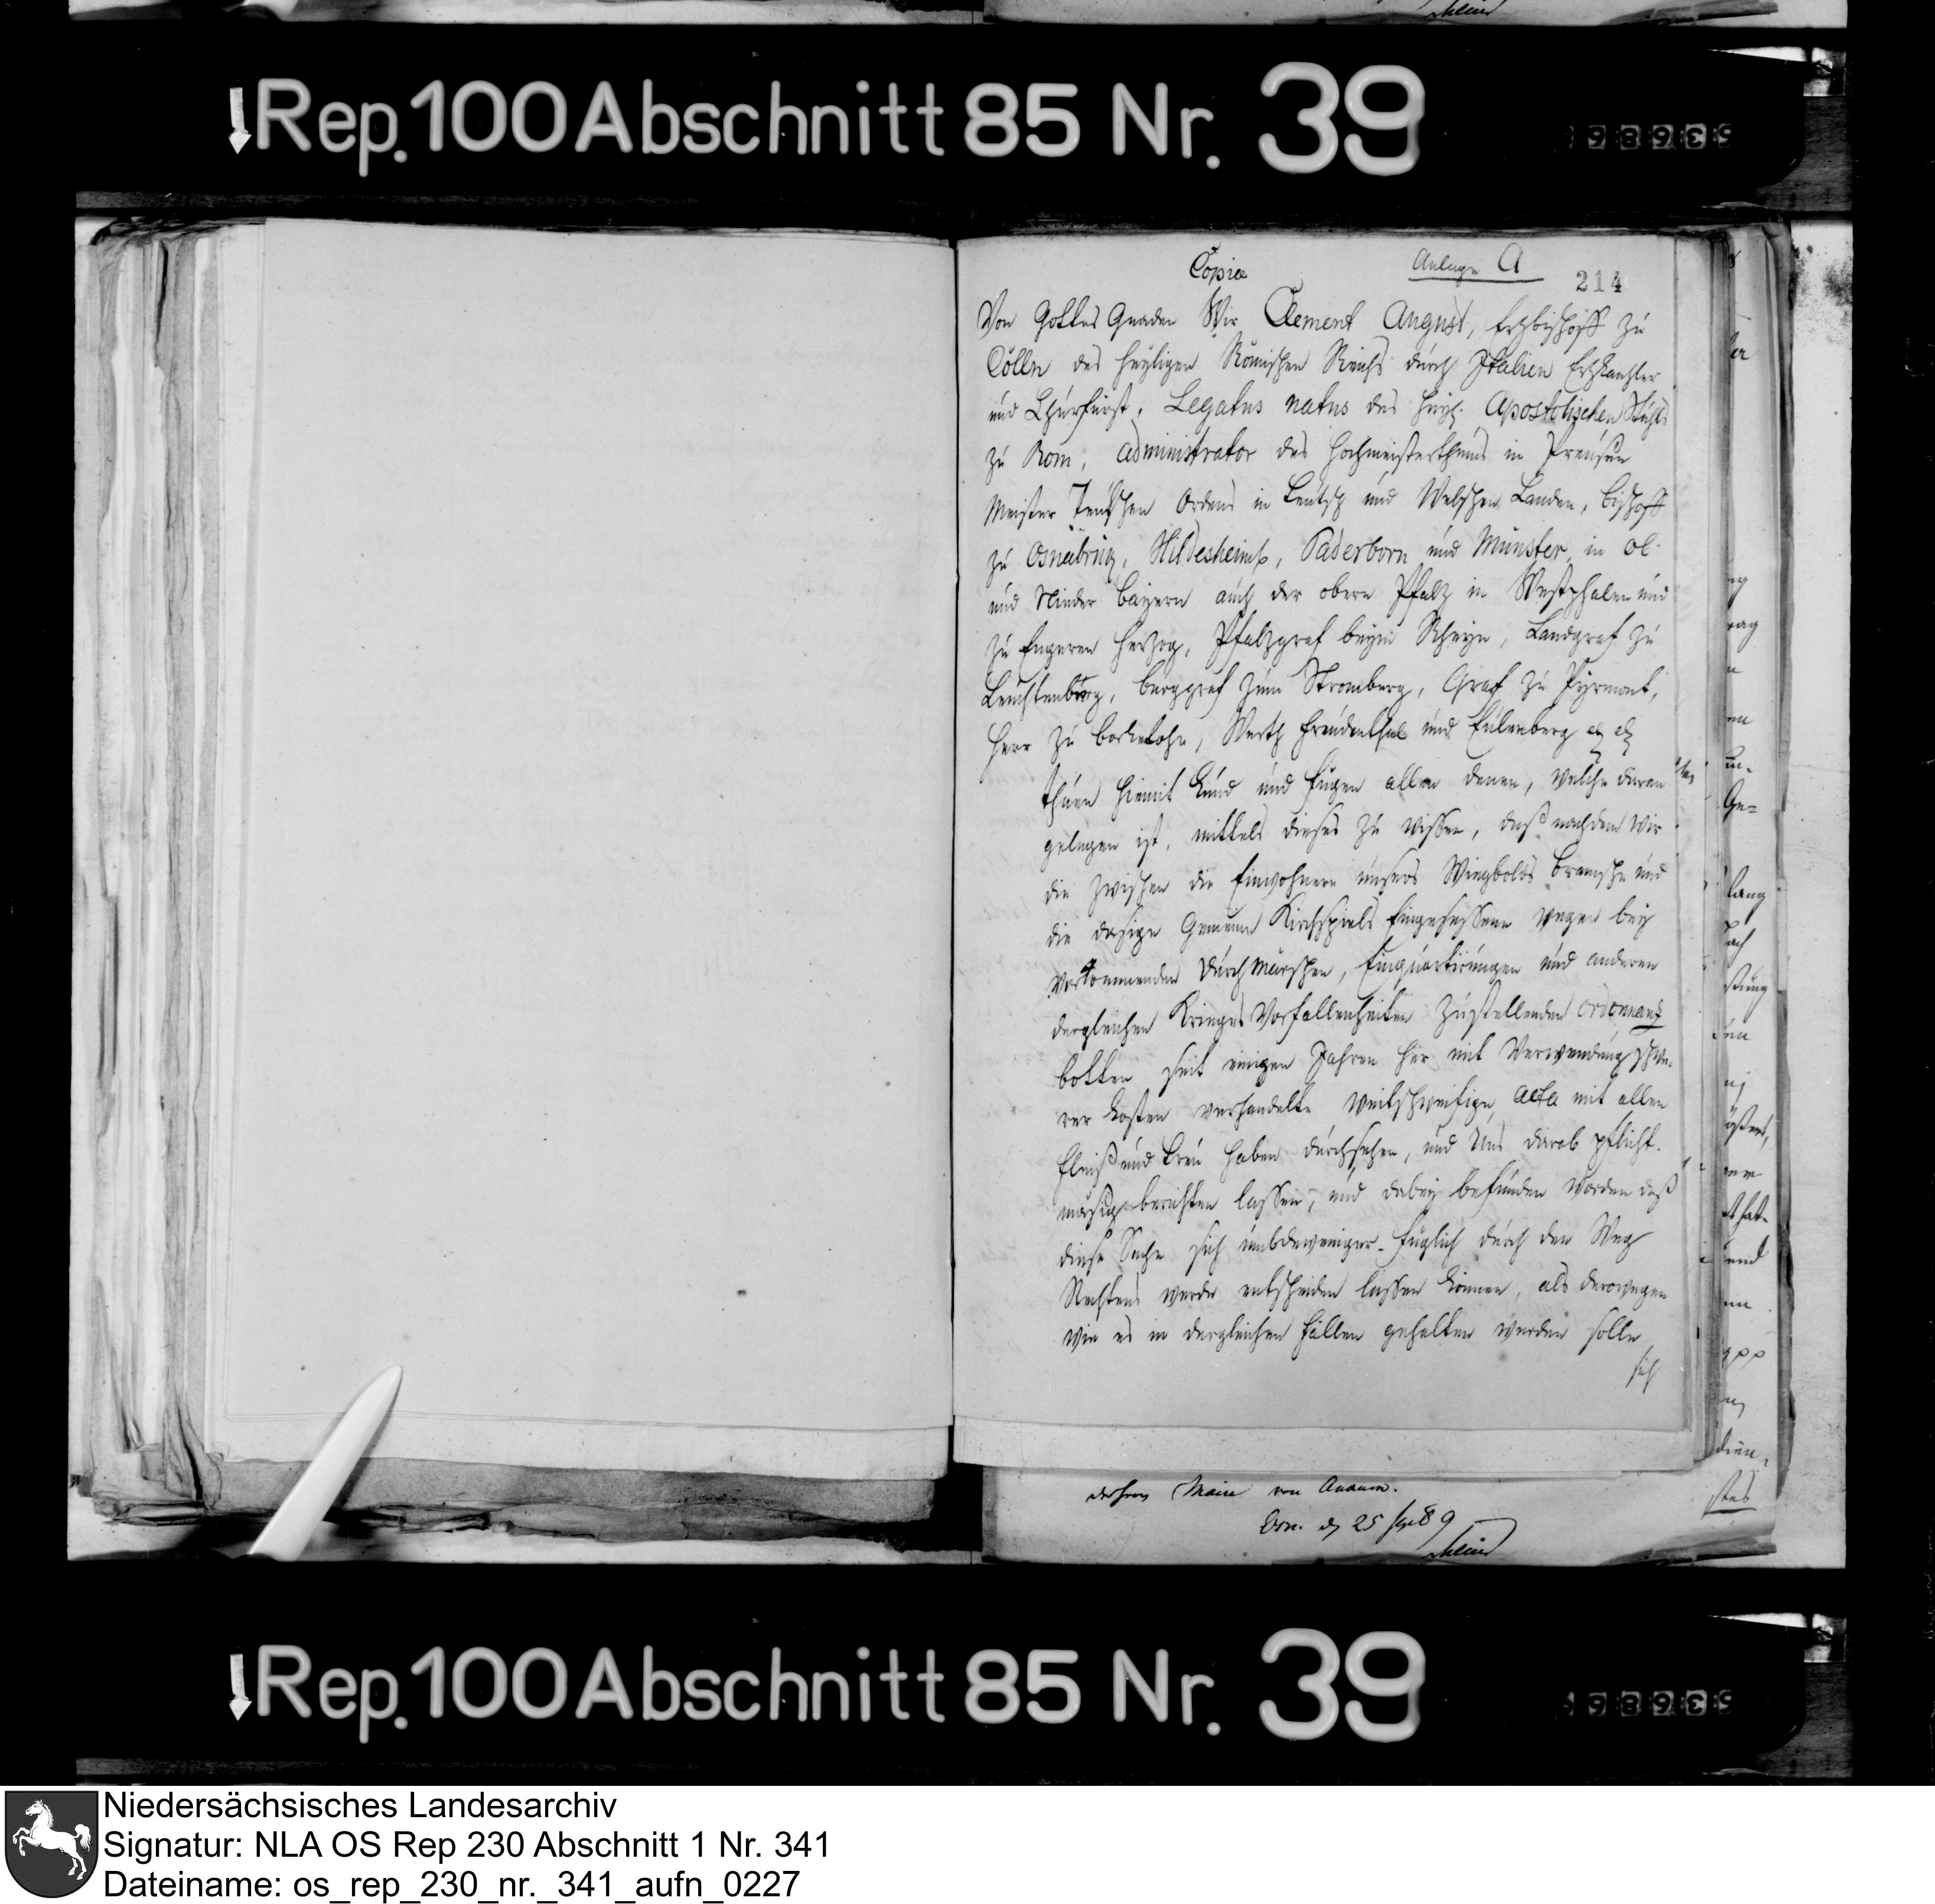 Rep. 100 Abschnitt 85 Nr. 39
Copia
Anlage A
214
Von Gottes Gnaden Wir Clement August, Ertzbischoff zu
Cölln des heyligen Römischen Reichs durch Italien Ertzkantzler
und Churfürst, Legatus natus des heyl. Apostolischen Stuhls
zu Rom, Administrator des Hochmeisterthums in Preußen
Meister Teutschen Ordens in Teutsch und Welschen Landen, Bischoff
zu Osnabrüg, Hildesheimb, Paderborn und Münster, in Ob-
und Nieder Bayern auch der obern Pfaltz in Westphalen und
zu Engeren Hertzog, Pfaltzgraf beym Rheyn, Landgraf zu
Leuchtenburg, Burggraf zum Stromberg, Graf zu Pyrmont,
Herr zu Borkelohe, Werth Freudenthal und Eulenberg
thuen hiemit kund und fügen allen denen, welche daran
gelegen ist, mittels dieses zu wissen, daß nachdem Wir
die zwischen die Einwohnere unsers Wiegbolds Bramsche und
die dasige Gemeine Kirchspiels Eingesessene wegen bey
vorkommenden Durchmärschen, Einquartirungen und anderen
dergleichen Krieges Vorfallenheiten zustellenden Ordonnantz
botten seit einigen Jahren her mit Verwendung schwe-
rer Kosten verhandelte weitschweifige Acta mit allen
Fleiß und Treu haben durchsehen, und Uns darob pflicht-
mäsig berichten lassen, und dabey befunden worden daß
diese Sache sich umbdeweniger füglich durch den Weg
Rechtens werde entscheiden lassen können, als derowegen
wie es in dergleichen Fällen gehalten werden solle
sich
Maire von
Osn. d 25 Sept 89
Rep. 100 Abschnitt 85 Nr. 39
Niedersächsisches Landesarchiv
Signatur: NLA OS Rep 230 Abschnitt 1 Nr. 341
Dateiname: os_rep_230_nr._341_aufn_0227